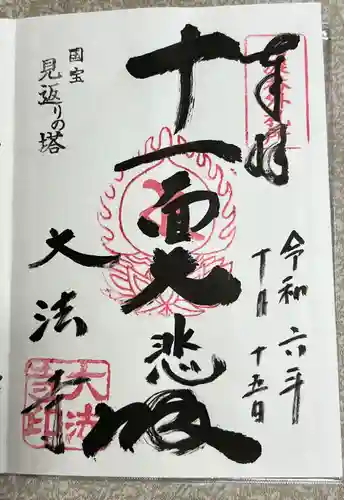 奉拝
令和六年
十月十五日
十一面大悲殿
国宝
見返りの塔
大法寺
大法
寺印